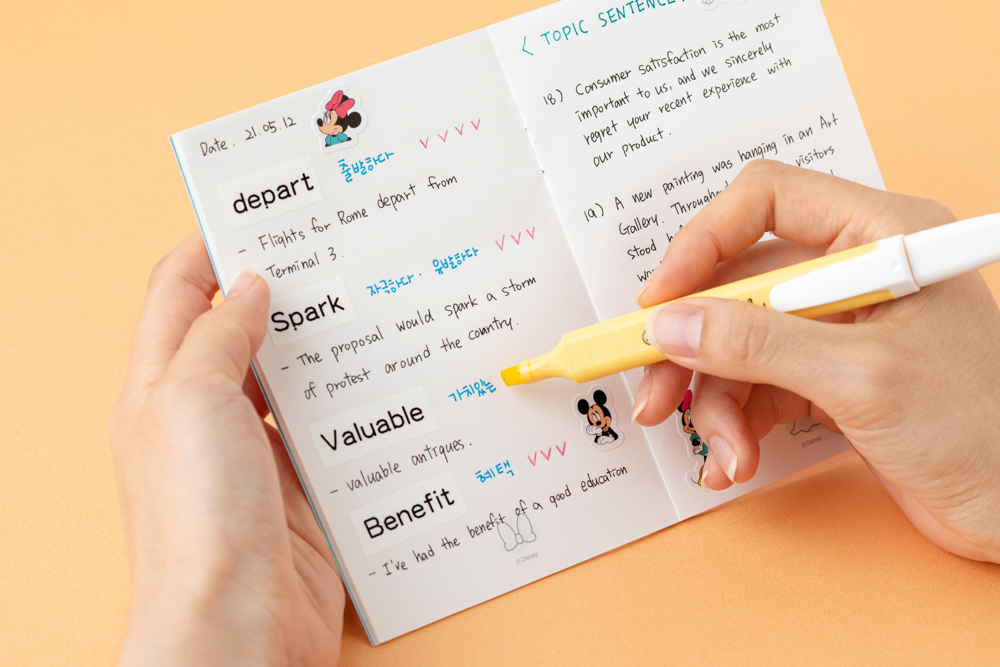 Date. 21.05.12
depart 출발하다 V V V V
- Flights for Rome depart from
Terminal 3.
Spark 자극하다. 유발하다 V V V
- The proposal would spark a storm
of protest around the country.
Valuable 가치있는
- valuable antiques.
Benefit 혜택 V V V
- I've had the benefit of a good education
© Disney
< TOPIC SENTENCE
18) Consumer satisfaction is the most
important to us, and we sincerely
regret your recent experience with
our product.
19) A new painting was hanging in an Art
Gallery. visitors
stood
© Disney